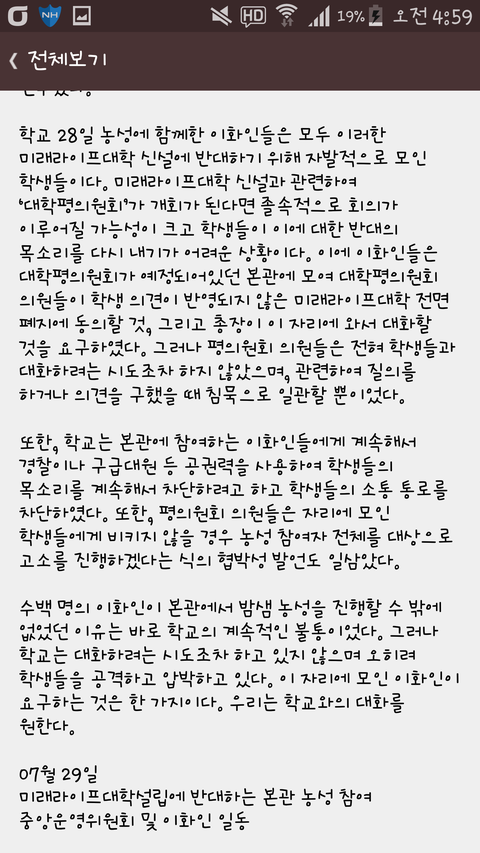 NH HD 19% 오전 4:59
전체보기
학교 28일 농성에 함께한 이화인들은 모두 이러한
미래라이프대학 신설에 반대하기 위해 자발적으로 모인
학생들이다. 미래라이프대학 신설과 관련하여
‘대학평의원회’가 개회가 된다면 졸속적으로 회의가
이루어질 가능성이 크고 학생들이 이에 대한 반대의
목소리를 다시 내기가 어려운 상황이다. 이에 이화인들은
대학평의원회가 예정되어있던 본관에 모여 대학평의원회
의원들이 학생 의견이 반영되지 않은 미래라이프대학 전면
폐지에 동의할 것, 그리고 총장이 이 자리에 와서 대화할
것을 요구하였다. 그러나 평의원회 의원들은 전혀 학생들과
대화하려는 시도조차 하지 않았으며, 관련하여 질의를
하거나 의견을 구했을 때 침묵으로 일관할 뿐이었다.
또한, 학교는 본관에 참여하는 이화인들에게 계속해서
경찰이나 구급대원 등 공권력을 사용하여 학생들의
목소리를 계속해서 차단하려고 하고 학생들의 소통 통로를
차단하였다. 또한, 평의원회 의원들은 자리에 모인
학생들에게 비키지 않을 경우 농성 참여자 전체를 대상으로
고소를 진행하겠다는 식의 협박성 발언도 일삼았다.
수백 명의 이화인이 본관에서 밤샘 농성을 진행할 수 밖에
없었던 이유는 바로 학교의 계속적인 불통이었다. 그러나
학교는 대화하려는 시도조차 하고 있지 않으며 오히려
학생들을 공격하고 압박하고 있다. 이 자리에 모인 이화인이
요구하는 것은 한 가지이다. 우리는 학교와의 대화를
원한다.
07월 29일
미래라이프대학설립에 반대하는 본관 농성 참여
중앙운영위원회 및 이화인 일동